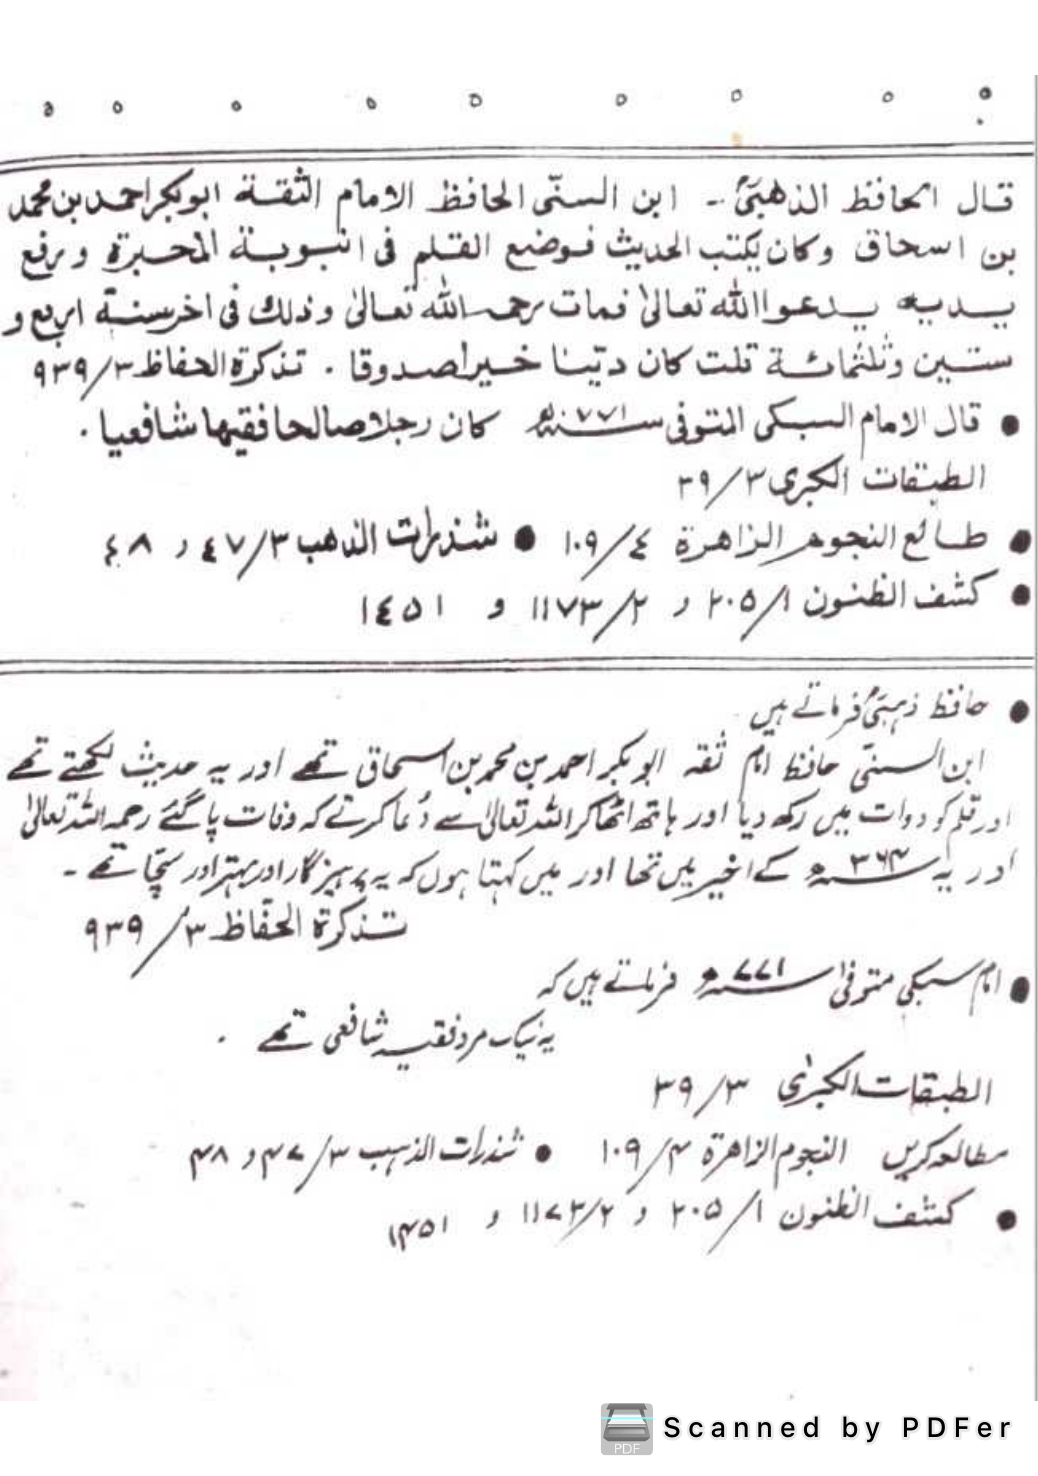 قال الحافظ الذهبیؒ۔ ابن السنّی الحافظ الامام الثقة ابوبکر احمد بن محمد
بن اسحاق وکان یکتب الحدیث فوضع القلم فی انبوبة المحبرة ورفع
یدیه یدعوا الله تعالیٰ فمات رحمه الله تعالیٰ وذلك فی اخر سنة اربع و
ستین وثلثمائة قلت کان دیّنا خیرا صدوقا . تذکرة الحفاظ ۳/ ۹۳۹
● قال الامام السبکی المتوفی سنة ۷۷۱ه کان رجلا صالحا فقیها شافعیا .
الطبقات الکبری ۳/ ۳۹
● طائع النجوم الزاهرة ٤/ ۱۰۹ ● شذرات الذهب ۳/ ٤۷ و ٤۸
● کشف الظنون ۱/ ۲۰۵ و ۲/ ۱۱۷۳ و ۱٤۵۱
● حافظ ذہبیؒ فرماتے ہیں
ابن السنّی حافظ امام ثقہ ابوبکر احمد بن محمد بن اسحاق تھے اور یہ حدیث لکھتے تھے
اور قلم کو دوات میں رکھ دیا اور ہاتھ اٹھا کر اللہ تعالیٰ سے دُعا کرتے کہ وفات پاگئے رحمہ اللہ تعالیٰ
اور یہ سنہ ۳۶۴ھ کے اخیر میں تھا اور میں کہتا ہوں کہ یہ پرہیزگار اور بہتر اور سچّا تھے ۔
تذکرة الحفّاظ ۳/ ۹۳۹
● امام سبکی متوفیٰ سنہ ۷۷۱ھ فرماتے ہیں کہ
یہ نیک مرد فقیہ شافعی تھے .
الطبقات الکبرٰی ۳/ ۳۹
مطالعہ کریں النجوم الزاهرة ۴/ ۱۰۹ ● شذرات الذہب ۳/ ۴۷ و ۴۸
● کشف الظنون ۱/ ۲۰۵ و ۲/ ۱۱۷۳ و ۱۴۵۱
Scanned by PDFer
PDF